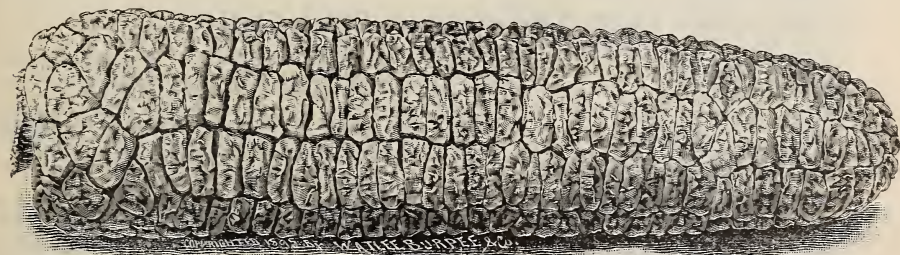 COPYRIGHTED 1895 BY W. ATLEE BURPEE & CO.